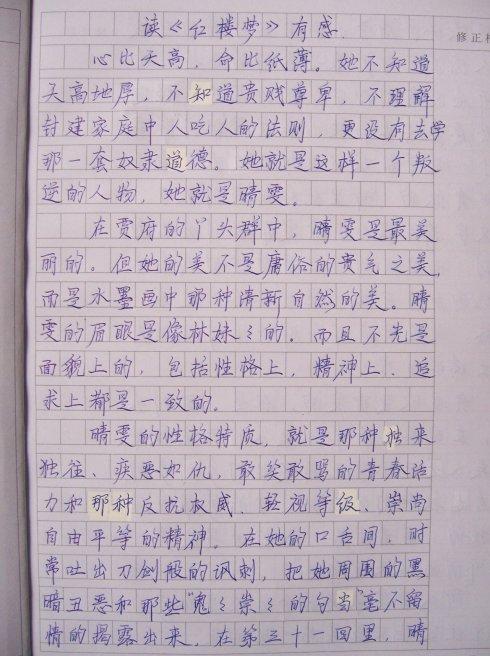 读《红楼梦》有感
修正
心比天高，命比纸薄。她不知道
天高地厚，不知道贵贱尊卑，不理解
封建家庭中人吃人的法则，更没有去学
那一套奴隶道德。她就是这样一个叛
逆的人物，她就是晴雯。
在贾府的丫头群中，晴雯是最美
丽的。但她的美不是庸俗的贵气之美，
而是水墨画中那种清新自然的美。晴
雯的眉眼是像林妹々的。而且不光是
面貌上的，包括性格上，精神上、追
求上都是一致的。
晴雯的性格特质，就是那种独来
独往、疾恶如仇，敢笑敢骂的青春活
力和那种反抗权威、轻视等级、崇尚
自由平等的精神。在她的口舌间，时
常吐出刀剑般的讽刺，把她周围的黑
暗丑恶和那些"鬼々祟々的勾当"毫不留
情的揭露出来。在第三十一回里，晴